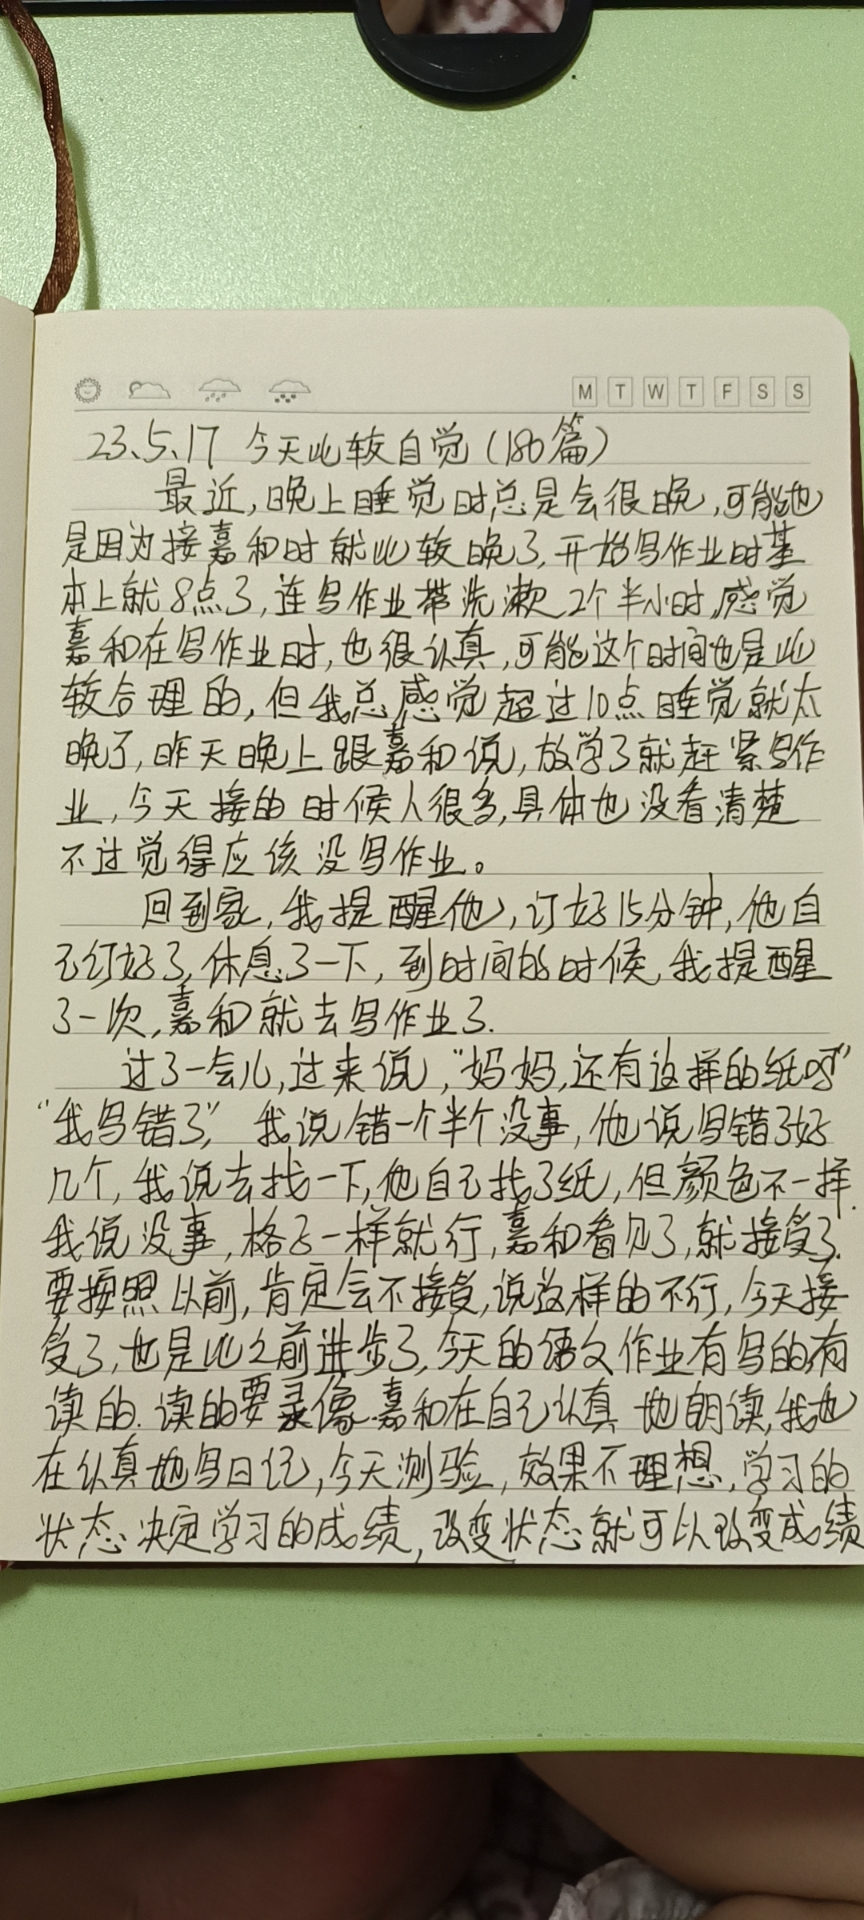 M T W T F S S
23.5.17 今天比较自觉(180篇)
最近,晚上睡觉时总是会很晚,可能也
是因为接嘉和时就比较晚了,开始写作业时基
本上就8点了,连写作业带洗漱2个半小时,感觉
嘉和在写作业时,也很认真,可能这个时间也是比
较合理的,但我总感觉超过10点睡觉就太
晚了,昨天晚上跟嘉和说,放学了就赶紧写作
业,今天接的时候人很多,具体也没看清楚
不过觉得应该没写作业。
回到家,我提醒他,订好15分钟,他自
己订好了,休息了一下,到时间的时候,我提醒
了一次,嘉和就去写作业了.
过了一会儿,过来说,“妈妈,还有这样的纸吗”
“我写错了”,我说错一个半个没事,他说写错了好
几个,我说去找一下,他自己找了纸,但颜色不一样.
我说没事,格子一样就行,嘉和看见了,就接受了.
要按照以前,肯定会不接受,说这样的不行,今天接
受了,也是比之前进步了,今天的语文作业有写的有
读的.读的要录像.嘉和在自己认真地朗读,我也
在认真地写日记,今天测验,效果不理想,学习的
状态决定学习的成绩,改变状态就可以改变成绩